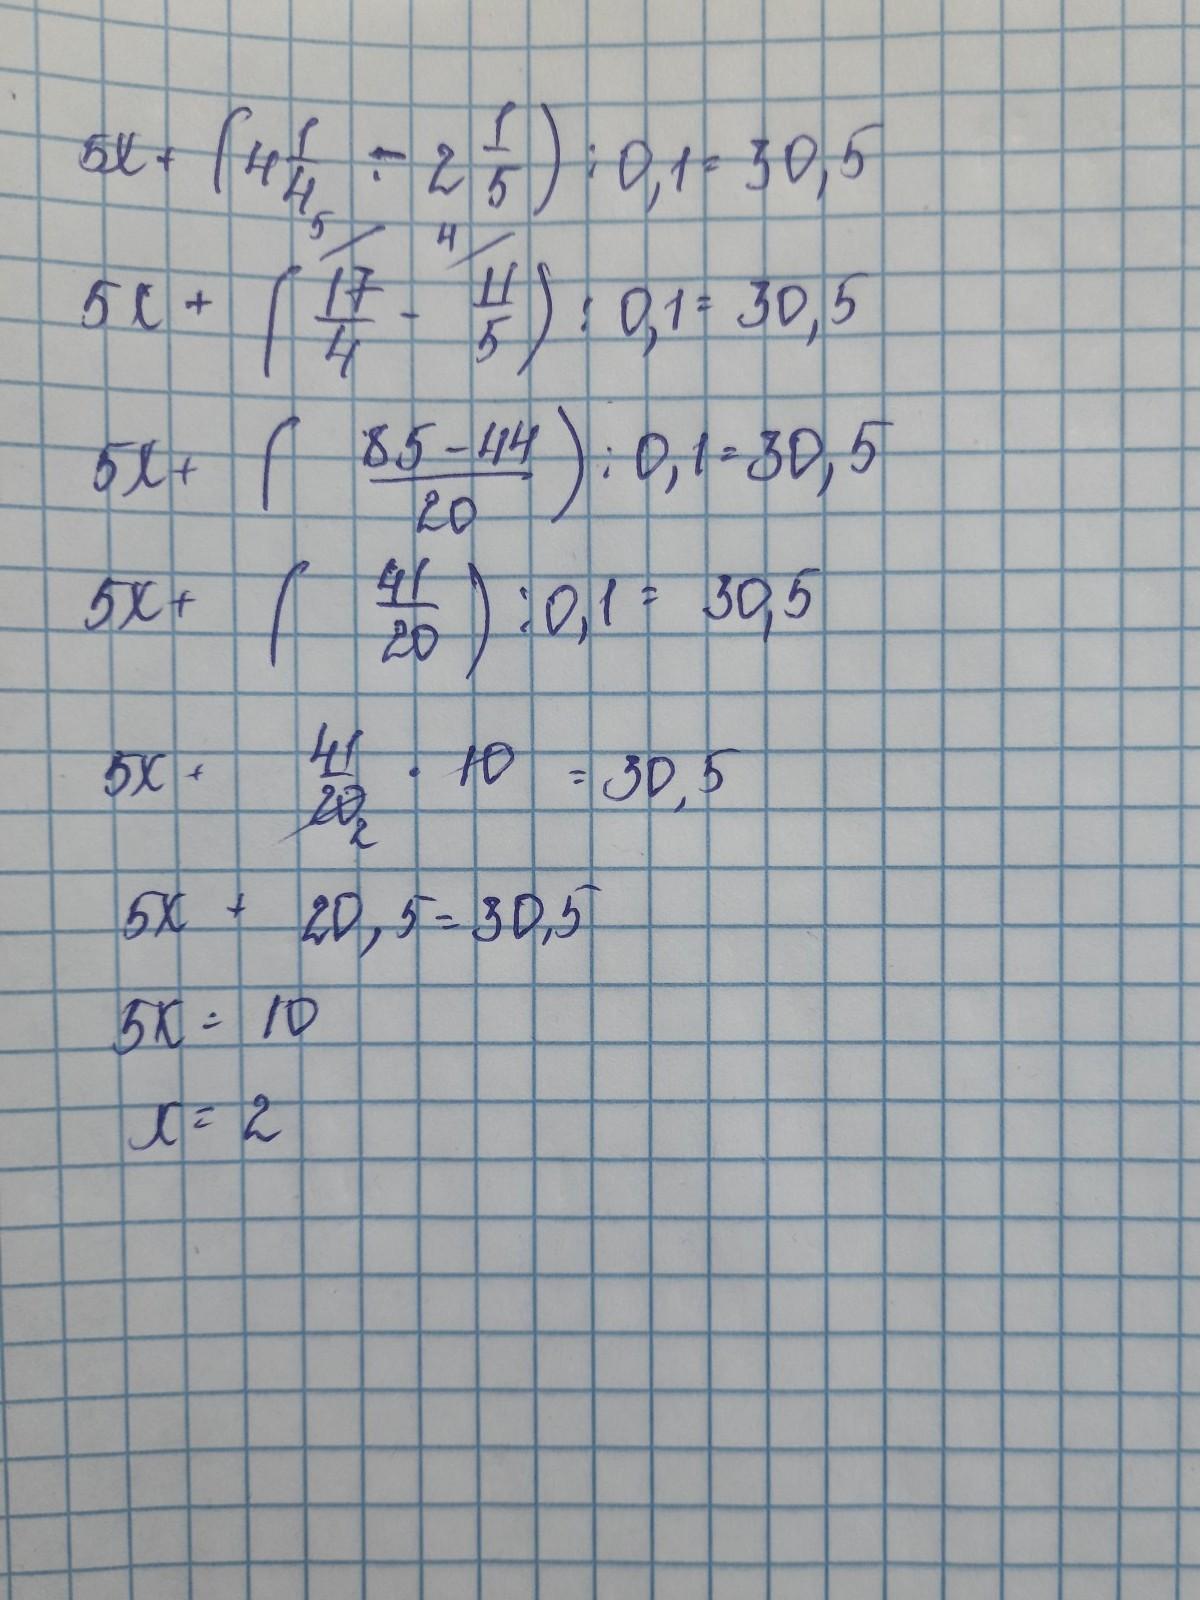 5x + (4 1/4 ÷ 2 1/5) : 0,1 = 30,5
5x + (17/4 ⁵/ - 11/5 ⁴/) : 0,1 = 30,5
5x + (85 - 44 / 20) : 0,1 = 30,5
5x + (41/20) : 0,1 = 30,5
5x + 41/20 2 · 10 = 30,5
5x + 20,5 = 30,5
5x = 10
x = 2